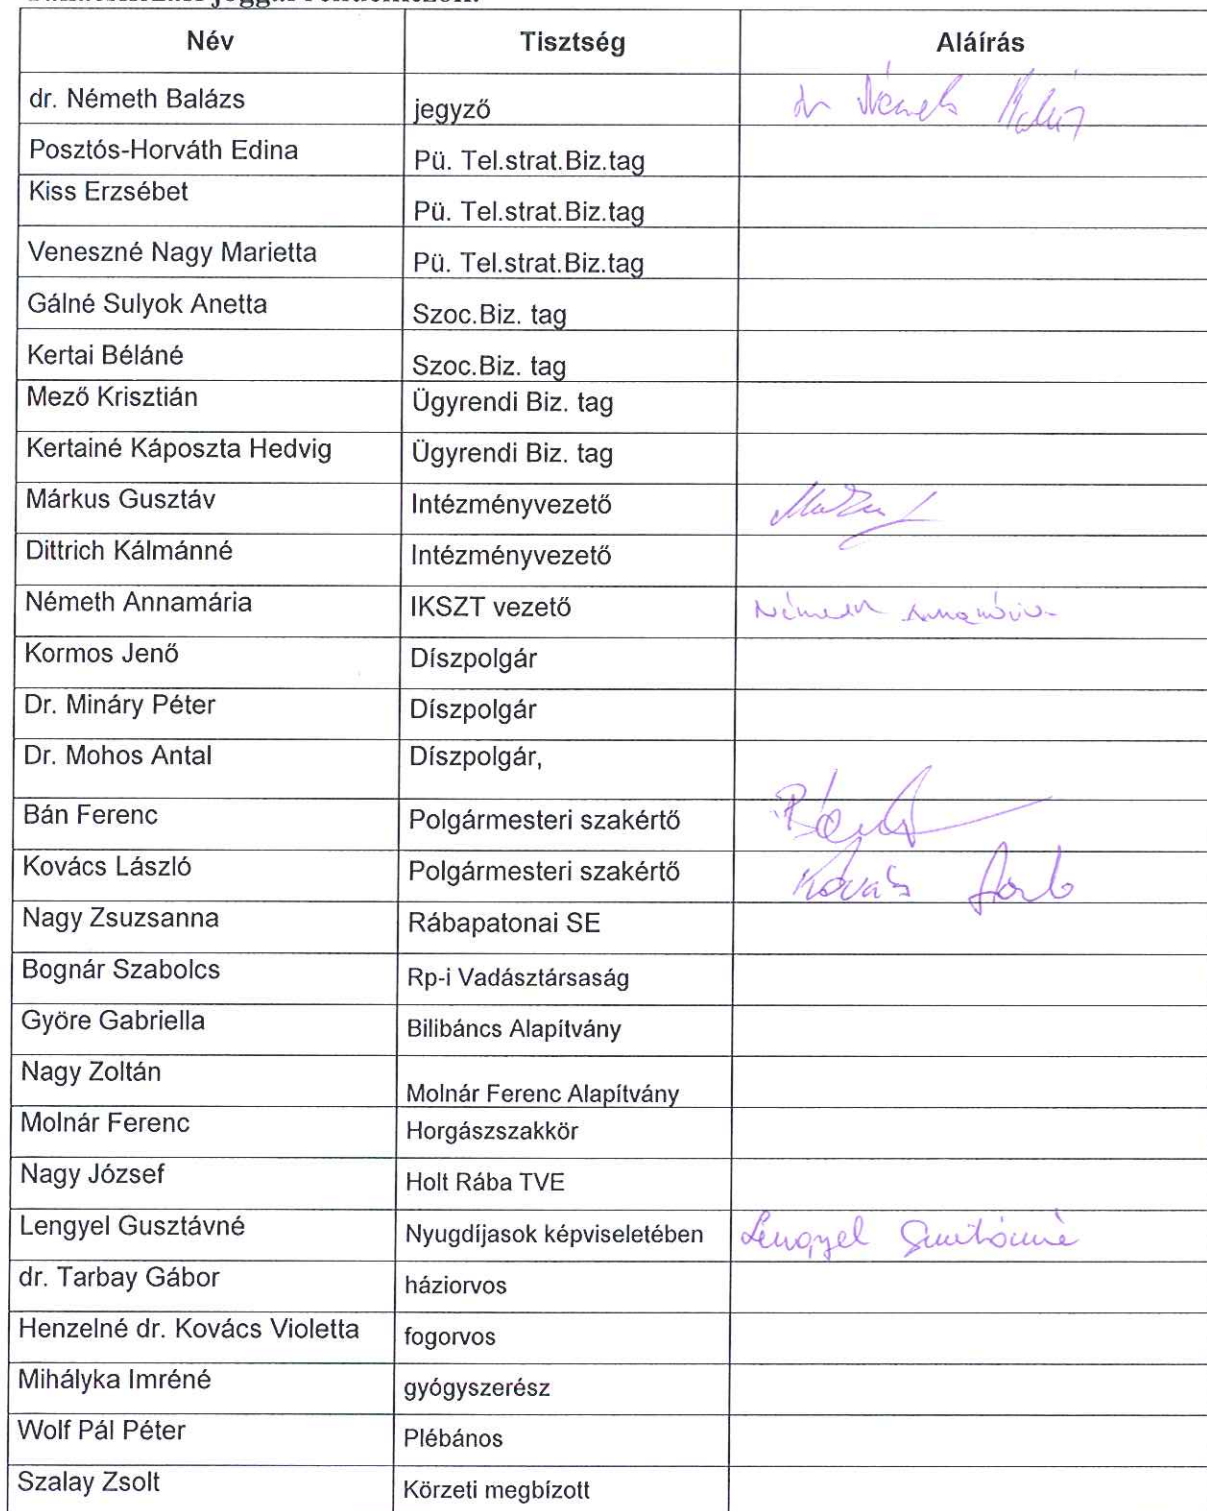 Név Tisztség Aláírás
dr. Németh Balázs jegyző dr Németh Balázs
Posztós-Horváth Edina Pü. Tel.strat.Biz.tag
Kiss Erzsébet Pü. Tel.strat.Biz.tag
Veneszné Nagy Marietta Pü. Tel.strat.Biz.tag
Gálné Sulyok Anetta Szoc.Biz. tag
Kertai Béláné Szoc.Biz. tag
Mező Krisztián Ügyrendi Biz. tag
Kertainé Káposzta Hedvig Ügyrendi Biz. tag
Márkus Gusztáv Intézményvezető
Dittrich Kálmánné Intézményvezető
Németh Annamária IKSZT vezető Németh Annamária
Kormos Jenő Díszpolgár
Dr. Mináry Péter Díszpolgár
Dr. Mohos Antal Díszpolgár,
Bán Ferenc Polgármesteri szakértő
Kovács László Polgármesteri szakértő Kovács
Nagy Zsuzsanna Rábapatonai SE
Bognár Szabolcs Rp-i Vadásztársaság
Györe Gabriella Bilibáncs Alapítvány
Nagy Zoltán Molnár Ferenc Alapítvány
Molnár Ferenc Horgászszakkör
Nagy József Holt Rába TVE
Lengyel Gusztávné Nyugdíjasok képviseletében Lengyel Gusztávné
dr. Tarbay Gábor háziorvos
Henzelné dr. Kovács Violetta fogorvos
Mihályka Imréné gyógyszerész
Wolf Pál Péter Plébános
Szalay Zsolt Körzeti megbízott